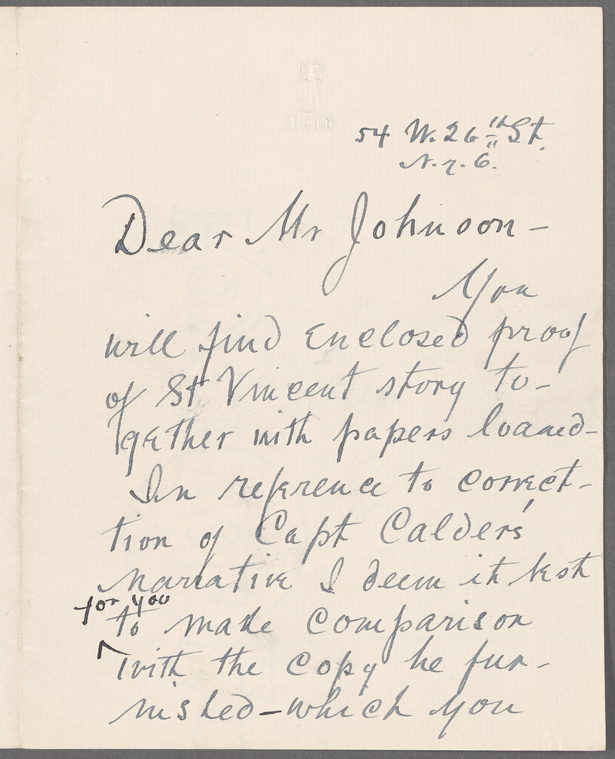 54 W. 26th St.
N.Y.C.
Dear Mr Johnson-
You
will find enclosed proof
of St Vincent story to-
gether with papers loaned-
In reference to correct-
tion of Capt Calder's
narrative I deem it best
for you
to make comparison
with the copy he fur-
nished-which you